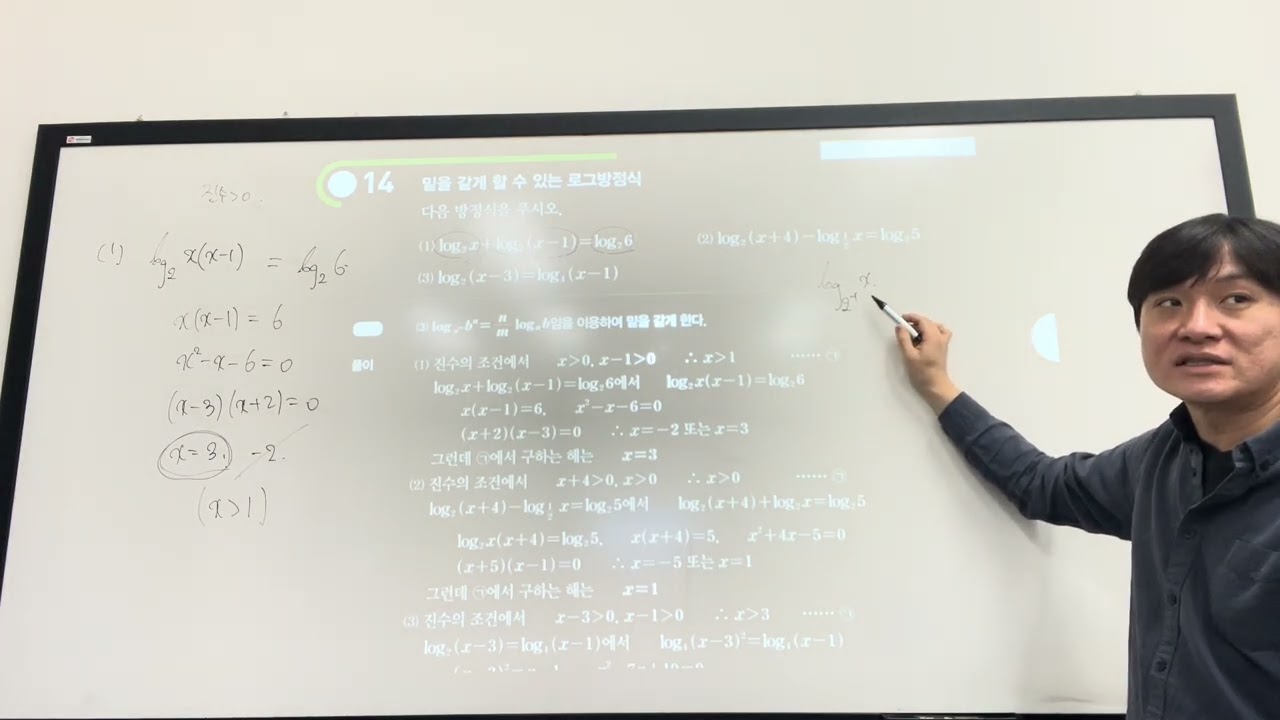 진수>0.
(1) log₂ x(x-1) = log₂ 6
x(x-1) = 6
x²-x-6=0
(x-3)(x+2)=0
x=3, -2.
(x>1)
14 밑을 같게 할 수 있는 로그방정식
다음 방정식을 푸시오.
(1) log₂x+log₂(x-1)=log₂6
(2) log₂(x+4)-log_{1/2} x=log₂5
(3) log₂(x-3)=log₄(x-1)
log_{2⁻¹} x.
(3) log_{aᵐ} bⁿ= n/m log_a b임을 이용하여 밑을 같게 한다.
풀이
(1) 진수의 조건에서 x>0, x-1>0 ∴ x>1 ······ ㉠
log₂x+log₂(x-1)=log₂6에서 log₂x(x-1)=log₂6
x(x-1)=6, x²-x-6=0
(x+2)(x-3)=0 ∴ x=-2 또는 x=3
그런데 ㉠에서 구하는 해는 x=3
(2) 진수의 조건에서 x+4>0, x>0 ∴ x>0 ······ ㉠
log₂(x+4)-log_{1/2} x=log₂5에서 log₂(x+4)+log₂x=log₂5
log₂x(x+4)=log₂5, x(x+4)=5, x²+4x-5=0
(x+5)(x-1)=0 ∴ x=-5 또는 x=1
그런데 ㉠에서 구하는 해는 x=1
(3) 진수의 조건에서 x-3>0, x-1>0 ∴ x>3 ······ ㉠
log₂(x-3)=log₄(x-1)에서 log₄(x-3)²=log₄(x-1)